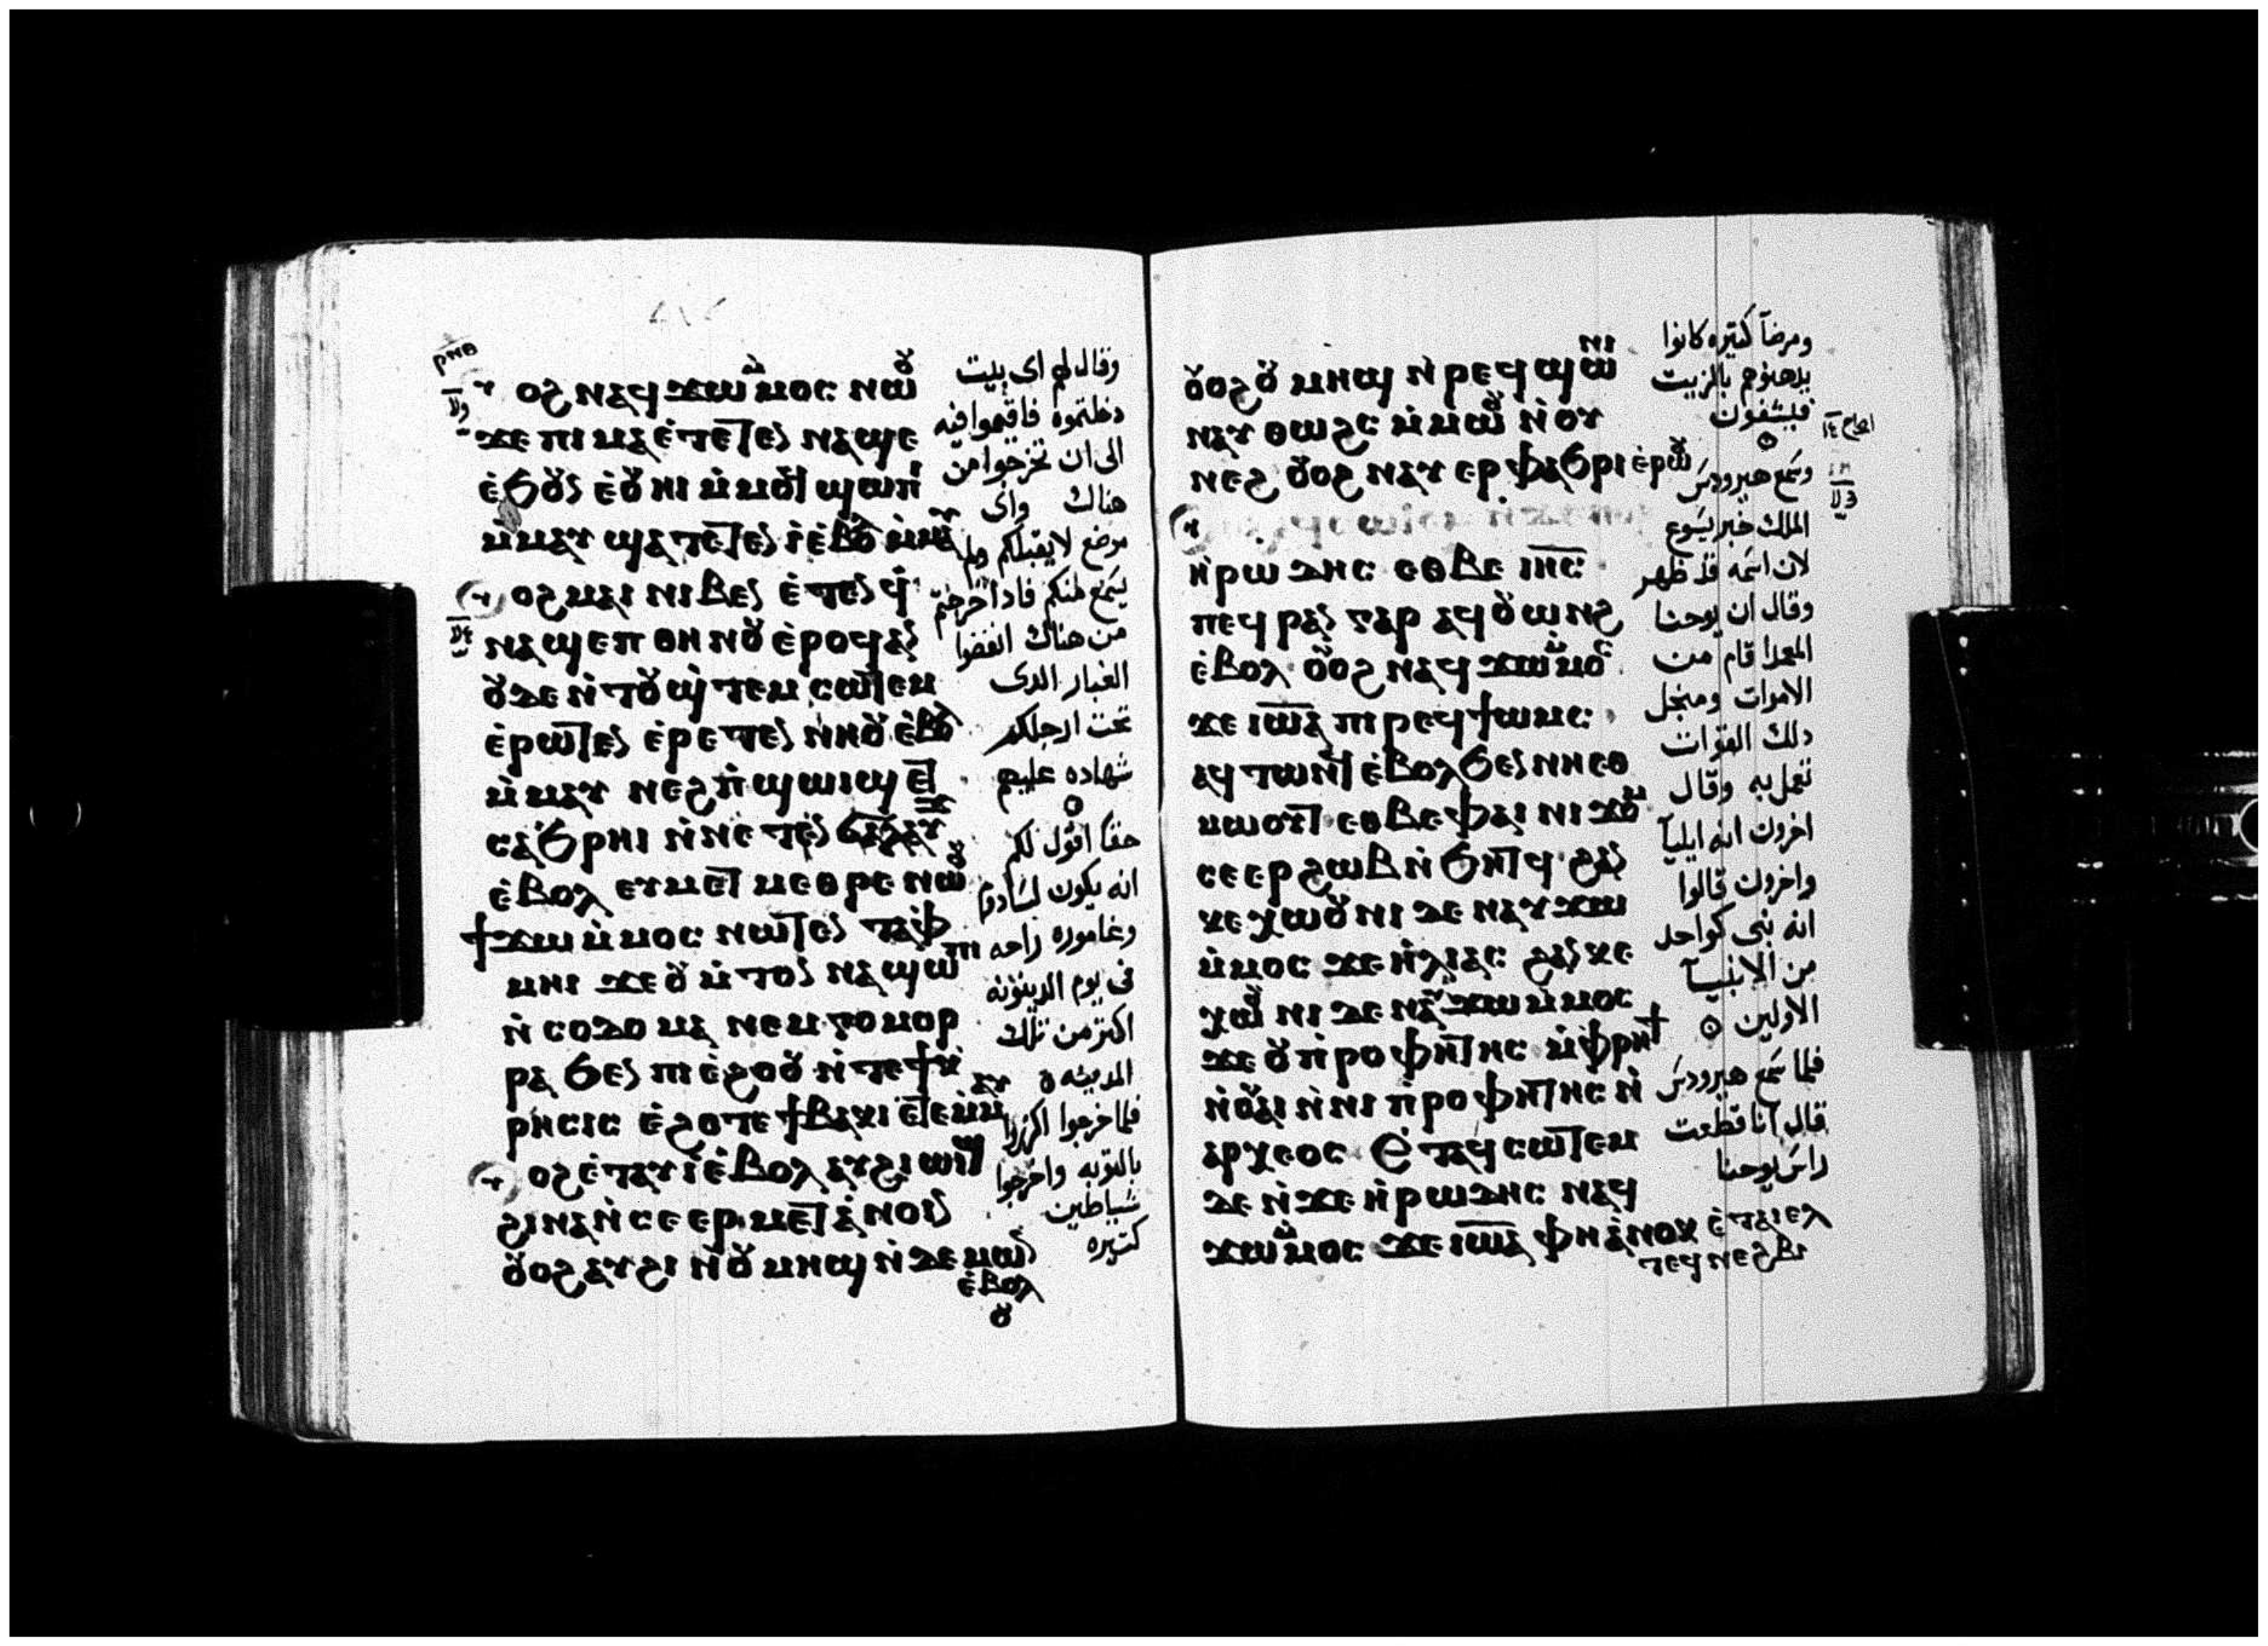 ⲣⲛⲑ
ⲟϩ ⲛⲁϥϫⲱⲙ̀ⲙⲟⲥ ⲛⲱⲟⲩ
ϫⲉ ⲡⲓⲙⲁ ⲉ̀ⲧⲉⲧⲉⲛ ⲛⲁϣⲉ
ⲉ̀ϧⲟⲩⲛ ⲉ̀ⲟⲩⲏⲓ ⲙ̀ⲙⲟϥ ϣⲱⲡⲓ
ⲙ̀ⲙⲁⲩ ϣⲁⲧⲉⲧⲉⲛⲓ̀ ⲉ̀ⲃⲟⲗ ⲙ̀ⲙⲁⲩ
ⲟϩ ⲙⲁⲓ ⲛⲓⲃⲉⲛ ⲉ̀ⲧⲉⲛϥ̀
ⲛⲁϣⲉⲡ ⲑⲏⲛⲟⲩ ⲉ̀ⲣⲟϥ ⲁⲛ
ⲟⲩⲇⲉ ⲛ̀ⲧⲟⲩϣ̀ⲧⲉⲙ ⲥⲱⲧⲉⲙ
ⲉ̀ⲣⲱⲧⲉⲛ ⲉ̀ⲣⲉⲧⲉⲛ ⲛ̀ⲏⲟⲩ ⲉ̀ⲃⲟⲗ
ⲙ̀ⲙⲁⲩ ⲛⲉϩ ⲡ̀ϣⲱⲓϣ ⲉⲧ
ⲥⲁϧⲣⲏⲓ ⲛ̀ⲛⲉⲧⲉⲛ ϭⲁⲗⲁⲩϫ
ⲉ̀ⲃⲟⲗ ⲉⲩⲙⲉⲧⲙⲉⲑⲣⲉ ⲛⲱⲟⲩ
ϯϫⲱ ⲙ̀ⲙⲟⲥ ⲛⲱⲧⲉⲛ ⲧⲁⲫ
ⲙⲏⲓ ϫⲉ ⲟⲩⲙ̀ⲧⲟⲛ ⲛⲁϣⲱⲡⲓ
ⲛ̀ⲥⲟⲇⲟⲙⲁ ⲛⲉⲙ ⲅⲟⲙⲟⲣ
ⲣⲁ ϧⲉⲛ ⲡⲓⲉ̀ϩⲟⲟⲩ ⲛ̀ⲧⲉ ϯⲕ
ⲣⲏⲥⲓⲥ ⲉ̀ϩⲟⲧⲉ ϯⲃⲁⲕⲓ ⲉⲧⲉⲙ̀ⲙⲁⲩ
ⲟϩ ⲉ̀ⲧⲁⲩⲓ̀ ⲉ̀ⲃⲟⲗ ⲁⲩϩⲓⲱⲓϣ
ϩⲓⲛⲁ ⲛ̀ⲥⲉⲉⲣⲙⲉⲧⲁ̀ⲛⲟⲓⲛ
ⲟⲩⲟϩ ⲁⲩϩⲓ ⲛ̀ⲟⲩⲙⲏϣ ⲛ̀ⲇⲉⲙⲱⲛ
ⲉ̀ⲃⲟⲗ
ⲟⲩ
وقال لهم اى بيت
دخلتموه فاقيموا فيه
الى ان تخرجوا من
هناك واى
موضع لا يقبلكم ولم
يسمع منكم فاذا خرجتم
من هناك انفضوا
الغبار الدى
تحت ارجلكم
شهاده عليهم
حقا اقول لكم
انه يكون لسادوم
وغاموره راحه
فى يوم الدينونه
اكتر من تلك
المدينه
فلما خرجوا اكرزوا
بالتوبه واخرجوا
شياطين
كتيره
ⲟⲩⲟϩ ⲟⲩⲙⲏϣ ⲛ̀ⲣⲉϥϣⲱⲛⲓ
ⲛⲁⲩ ⲑⲱϩⲥ ⲙ̀ⲙⲱⲟⲩ ⲛ̀ⲟⲩ
ⲛⲉϩ ⲟⲩⲟϩ ⲛⲁⲩ ⲉⲣⲫⲁϧⲣⲓ ⲉ̀ⲣⲱⲟⲩ
ⲏ̀ⲣⲱⲇⲏⲥ ⲉⲑⲃⲉ ⲓⲏⲥ
ⲡⲉϥⲣⲁⲛ ⲅⲁⲣ ⲁϥⲟⲩⲱⲛϩ
ⲉ̀ⲃⲟⲗ ⲟⲩⲟϩ ⲛⲁϥϫⲱⲙ̀ⲙⲟⲥ
ϫⲉ ⲓⲱⲁ ⲡⲓⲣⲉϥϯⲱⲙⲥ
ⲁϥⲧⲱⲛϥ ⲉ̀ⲃⲟⲗ ϧⲉⲛ ⲛⲏⲉⲑ
ⲙⲱⲟⲩⲧ ⲉⲑⲃⲉ ⲫⲁⲓ ⲛⲓϫⲟⲙ
ⲥⲉⲉⲣϩⲱⲃ ⲛ̀ϧⲏⲧϥ ϩⲁⲛ
ⲕⲉⲭⲱⲟⲩⲛⲓ ⲇⲉ ⲛⲁⲩϫⲱ
ⲙ̀ⲙⲟⲥ ϫⲉ ⲏ̀ⲗⲓⲁⲥ ϩⲁⲛⲕⲉ
ⲭⲱⲟⲩⲛⲓ ⲇⲉ ⲛⲁⲩϫⲱ ⲙ̀ⲙⲟⲥ
ϫⲉ ⲟⲩⲡ̀ⲣⲟⲫⲏⲧⲏⲥ ⲙ̀ⲫⲣⲏϯ
ⲛ̀ⲟⲩⲁⲓ ⲛ̀ⲛⲓⲡ̀ⲣⲟⲫⲏⲧⲏⲥ ⲛ̀
ⲁⲣⲭⲉⲟⲥ ⲉ̀ⲧⲁϥⲥⲱⲧⲉⲙ
ⲇⲉ ⲛ̀ϫⲉ ⲏ̀ⲣⲱⲇⲏⲥ ⲛⲁϥ
ϫⲱⲙ̀ⲙⲟⲥ ϫⲉ ⲓⲱⲁ ⲫⲏ ⲁ̀ⲛⲟⲕ ⲉ̀ⲧⲁⲓⲉⲗ
ⲧⲉϥⲛⲉϩⲃⲓ
ومرضآ كتيره كانوا
يدهنوهم بالزيت
فيشفون
وسمع هيرودس
الملك خبر يسوع
لان اسمه قد ظهر
وقال ان يوحنا
المعمدا قام من
الاموات ومنجل
دلك القوات
تعمل به وقال
اخرون انه ايليآ
واخرون قالوا
انه نبى كواحد
من الانبيآ
الاولين
فلما سمع هيرودس
قال انا قطعت
راس يوحنا